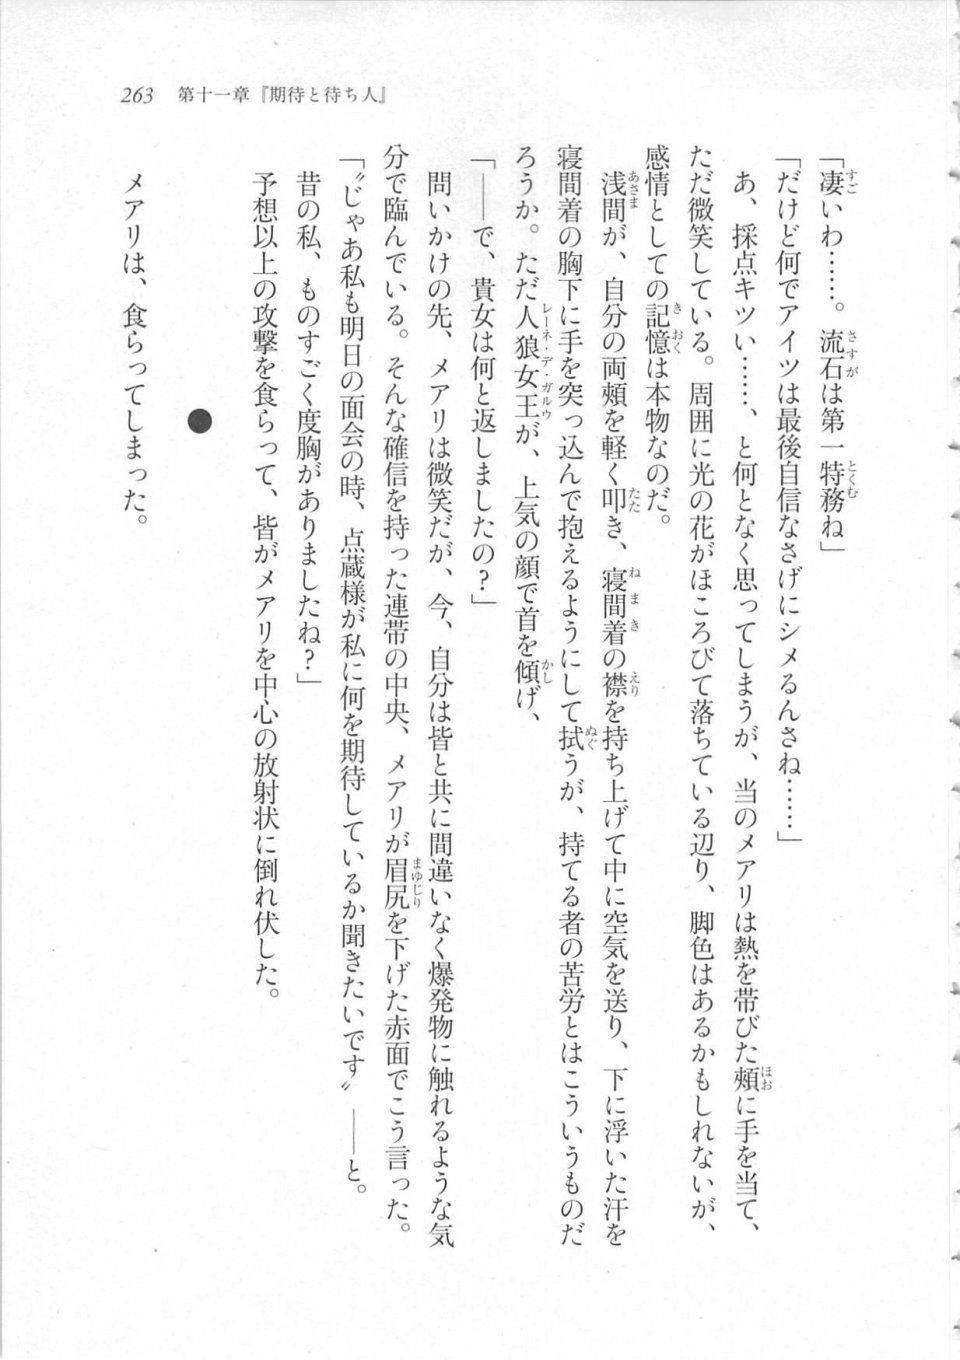 263 第十一章『期待と待ち人』
「凄いわ……。流石は第一特務ね」
「だけど何でアイツは最後自信なさげにシメるんさね……」
あ、採点キツい……、と何となく思ってしまうが、当のメアリは熱を帯びた頰に手を当て、
ただ微笑している。周囲に光の花がほころびて落ちている辺り、脚色はあるかもしれないが、
感情としての記憶は本物なのだ。
浅間が、自分の両頰を軽く叩き、寝間着の襟を持ち上げて中に空気を送り、下に浮いた汗を
寝間着の胸下に手を突っ込んで抱えるようにして拭うが、持てる者の苦労とはこういうものだ
ろうか。ただ人狼女王が、上気の顔で首を傾げ、
「――で、貴女は何と返しましたの？」
問いかけの先、メアリは微笑だが、今、自分は皆と共に間違いなく爆発物に触れるような気
分で臨んでいる。そんな確信を持った連帯の中央、メアリが眉尻を下げた赤面でこう言った。
「〝じゃあ私も明日の面会の時、点蔵様が私に何を期待しているか聞きたいです〟――と。
昔の私、ものすごく度胸がありましたね？」
予想以上の攻撃を食らって、皆がメアリを中心の放射状に倒れ伏した。
●
メアリは、食らってしまった。